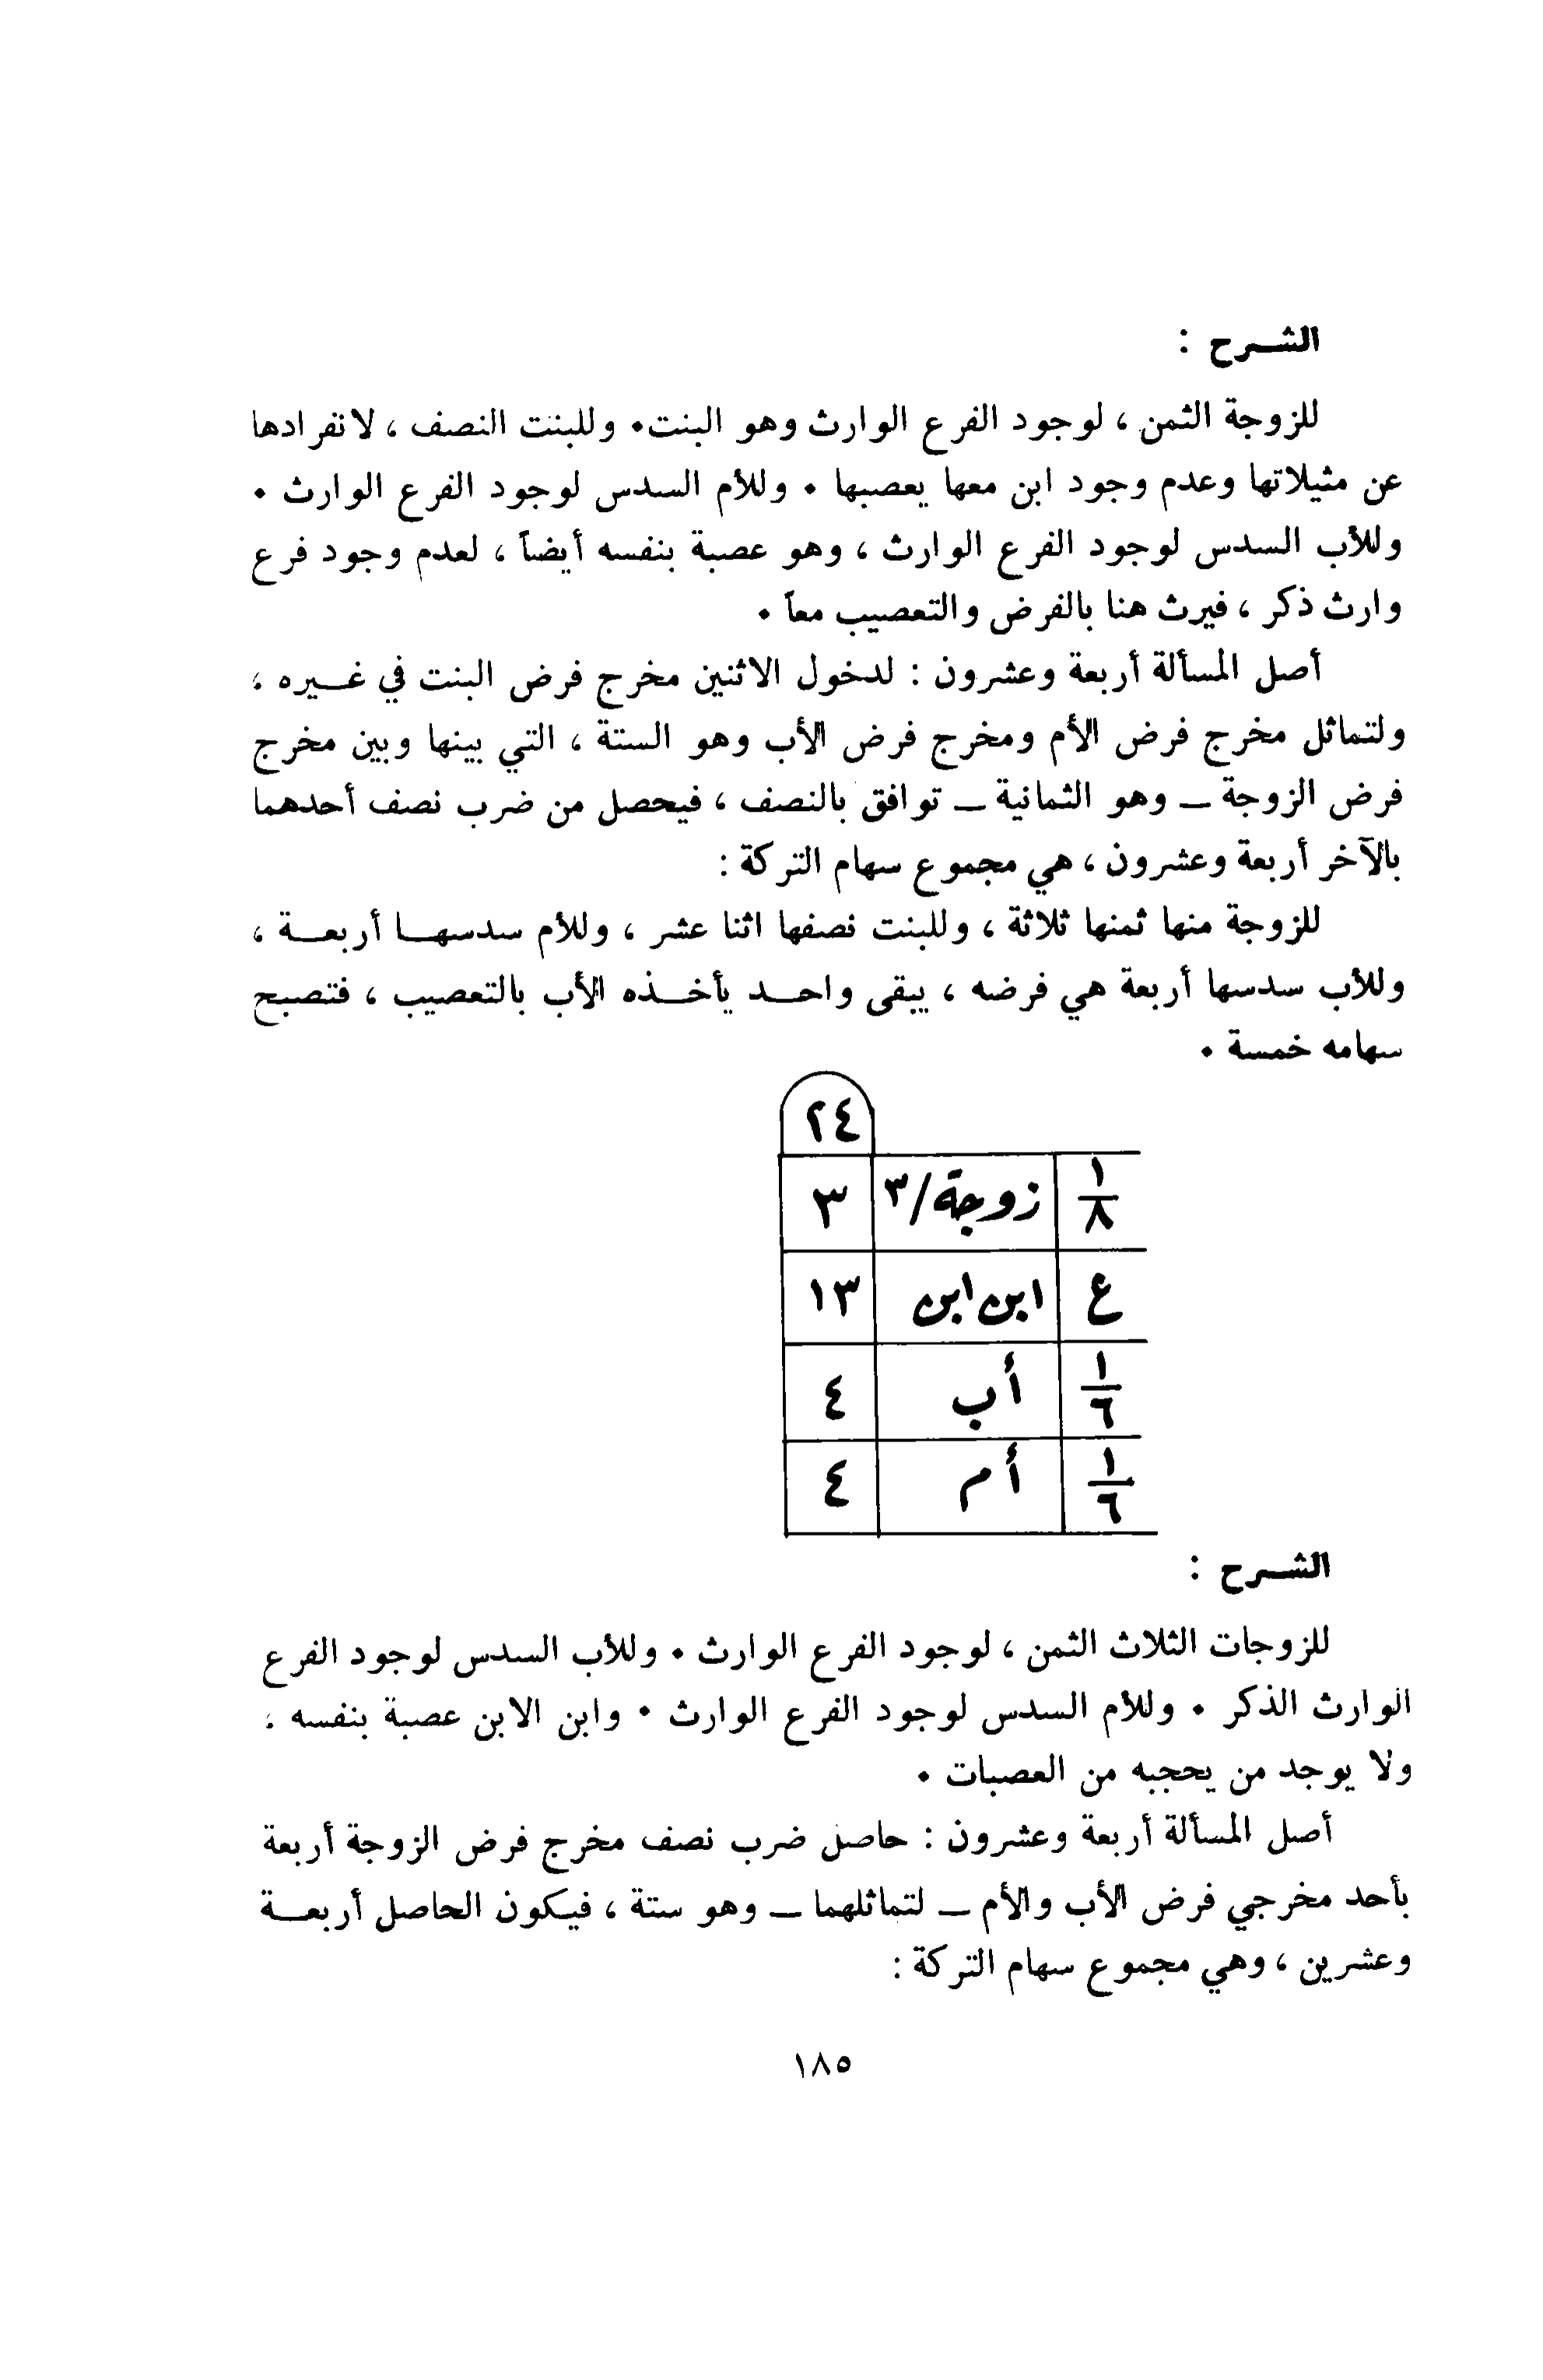 الشرح :
للزوجة الثمن ، لوجود الفرع الوارث وهو البنت٠ وللبنت النصف ، لانفرادها
عن مثيلاتها وعدم وجود ابن معها يعصبها ٠ وللأم السدس لوجود الفرع الوارث ٠
وللأب السدس لوجود الفرع الوارث ، وهو عصبة بنفسه أيضاً ، لعدم وجود فرع
وارث ذكر ، فيرث هنا بالفرض والتعصيب معاً ٠
أصل المسألة أربعة وعشرون : لدخول الاثنين مخرج فرض البنت في غيره ،
ولتماثل مخرج فرض الأم ومخرج فرض الأب وهو الستة ، التي بينها وبين مخرج
فرض الزوجة – وهو الثمانية – توافق بالنصف ، فيحصل من ضرب نصف أحدهما
بالآخر أربعة وعشرون ، هي مجموع سهام التركة :
للزوجة منها ثمنها ثلاثة ، وللبنت نصفها اثنا عشر ، وللأم سدسها أربعة ،
وللأب سدسها أربعة هي فرضه ، يبقى واحد يأخذه الأب بالتعصيب ، فتصبح
سهامه خمسة ٠
٢٤
١/٨ زوجة/٣ ٣
ع ابن ابن ١٣
١/٦ أب ٤
١/٦ أم ٤
الشرح :
للزوجات الثلاث الثمن ، لوجود الفرع الوارث ٠ وللأب السدس لوجود الفرع
الوارث الذكر ٠ وللأم السدس لوجود الفرع الوارث ٠ وابن الابن عصبة بنفسه ،
ولا يوجد من يحجبه من العصبات ٠
أصل المسألة أربعة وعشرون : حاصل ضرب نصف مخرج فرض الزوجة أربعة
بأحد مخرجي فرض الأب والأم – لتماثلهما – وهو ستة ، فيكون الحاصل أربعة
وعشرين ، وهي مجموع سهام التركة :
١٨٥